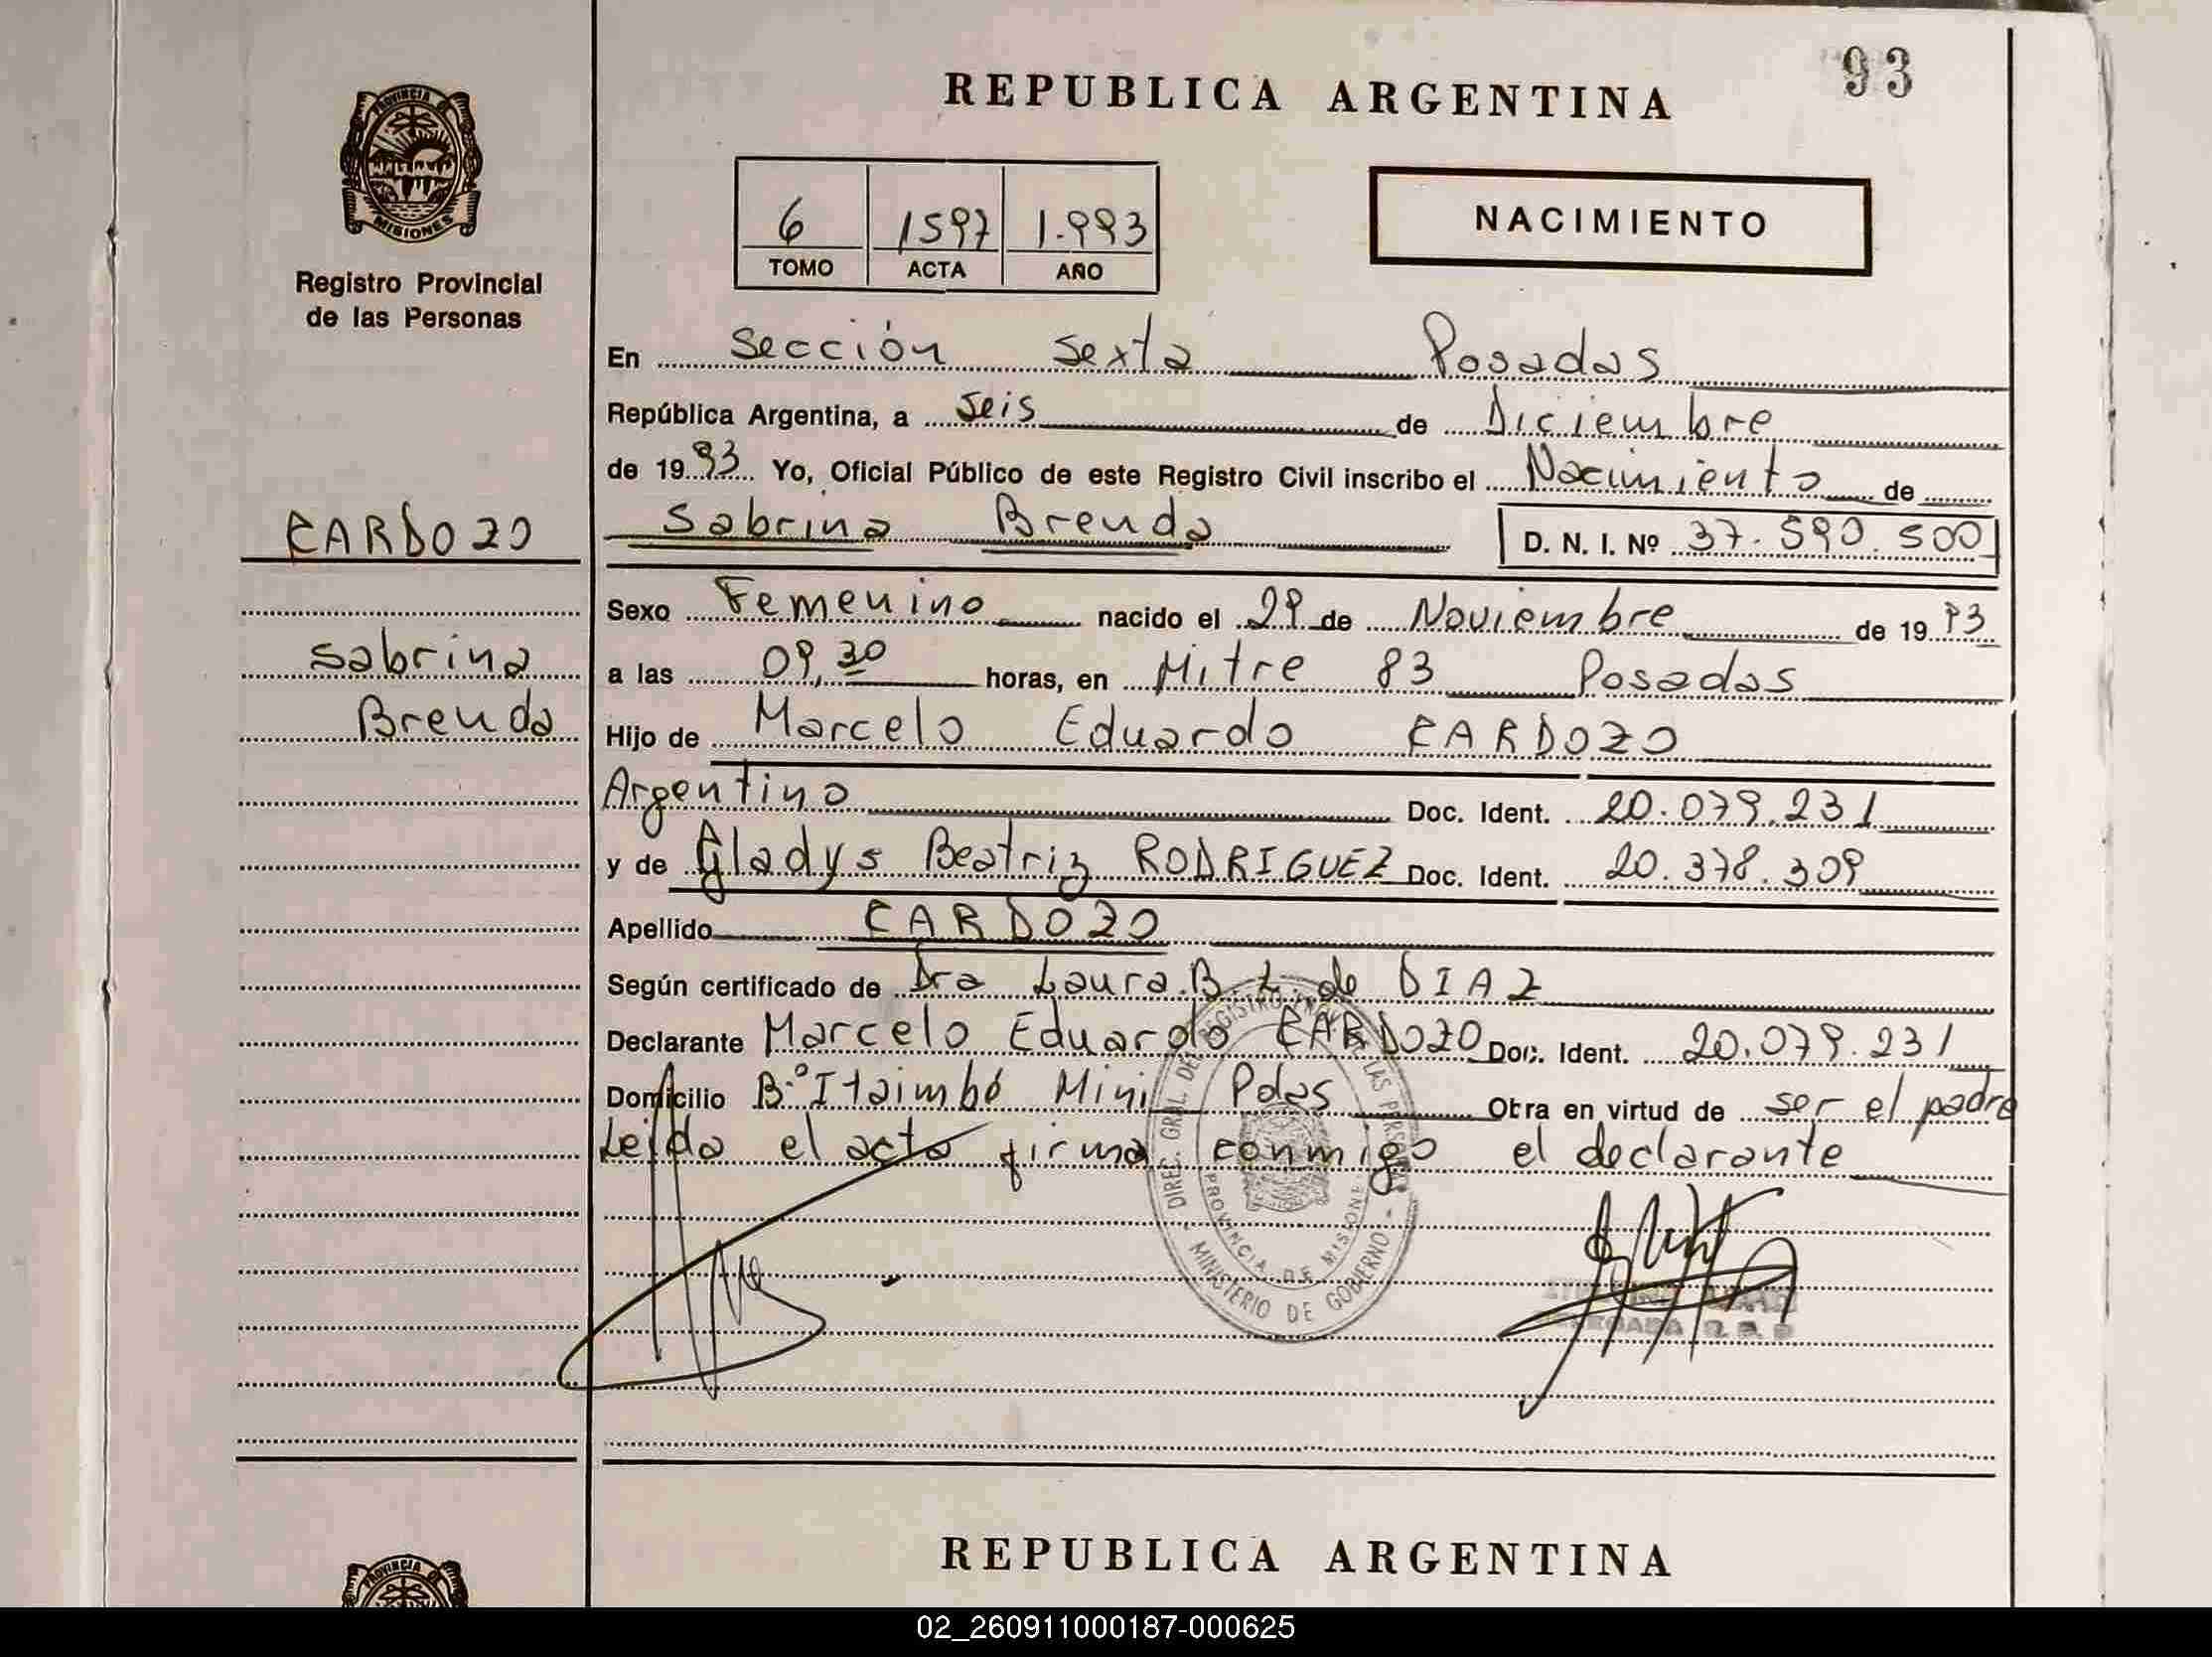 93
REPUBLICA ARGENTINA
PROVINCIA DE
MISIONES
Registro Provincial
de las Personas
6 1597 1.993
TOMO ACTA AÑO
NACIMIENTO
En Sección Sexta Posadas
República Argentina, a Seis de Diciembre
de 1993 Yo, Oficial Público de este Registro Civil inscribo el Nacimiento de
CARDOZO
Sabrina Brenda D. N. I. Nº 37.590.500
Sexo Femenino nacido el 29 de Noviembre de 1993
Sabrina
Brenda
a las 09,30 horas, en Mitre 83 Posadas
Hijo de Marcelo Eduardo CARDOZO
Argentino Doc. Ident. 20.079.231
y de Gladys Beatriz RODRIGUEZ Doc. Ident. 20.378.309
Apellido CARDOZO
Según certificado de Dra Laura.B.Z. de DIAZ
Declarante Marcelo Eduardo CARDOZO Doc. Ident. 20.079.231
Domicilio Bº Itaimbé Mini Pdas Obra en virtud de ser el padre
Leída el acta firma conmigo el declarante
DIREC. GRAL. DEL REGISTRO PROV. DE LAS PERSONAS
PROVINCIA DE MISIONES
MINISTERIO DE GOBIERNO
REPUBLICA ARGENTINA
PROVINCIA DE
02_260911000187-000625